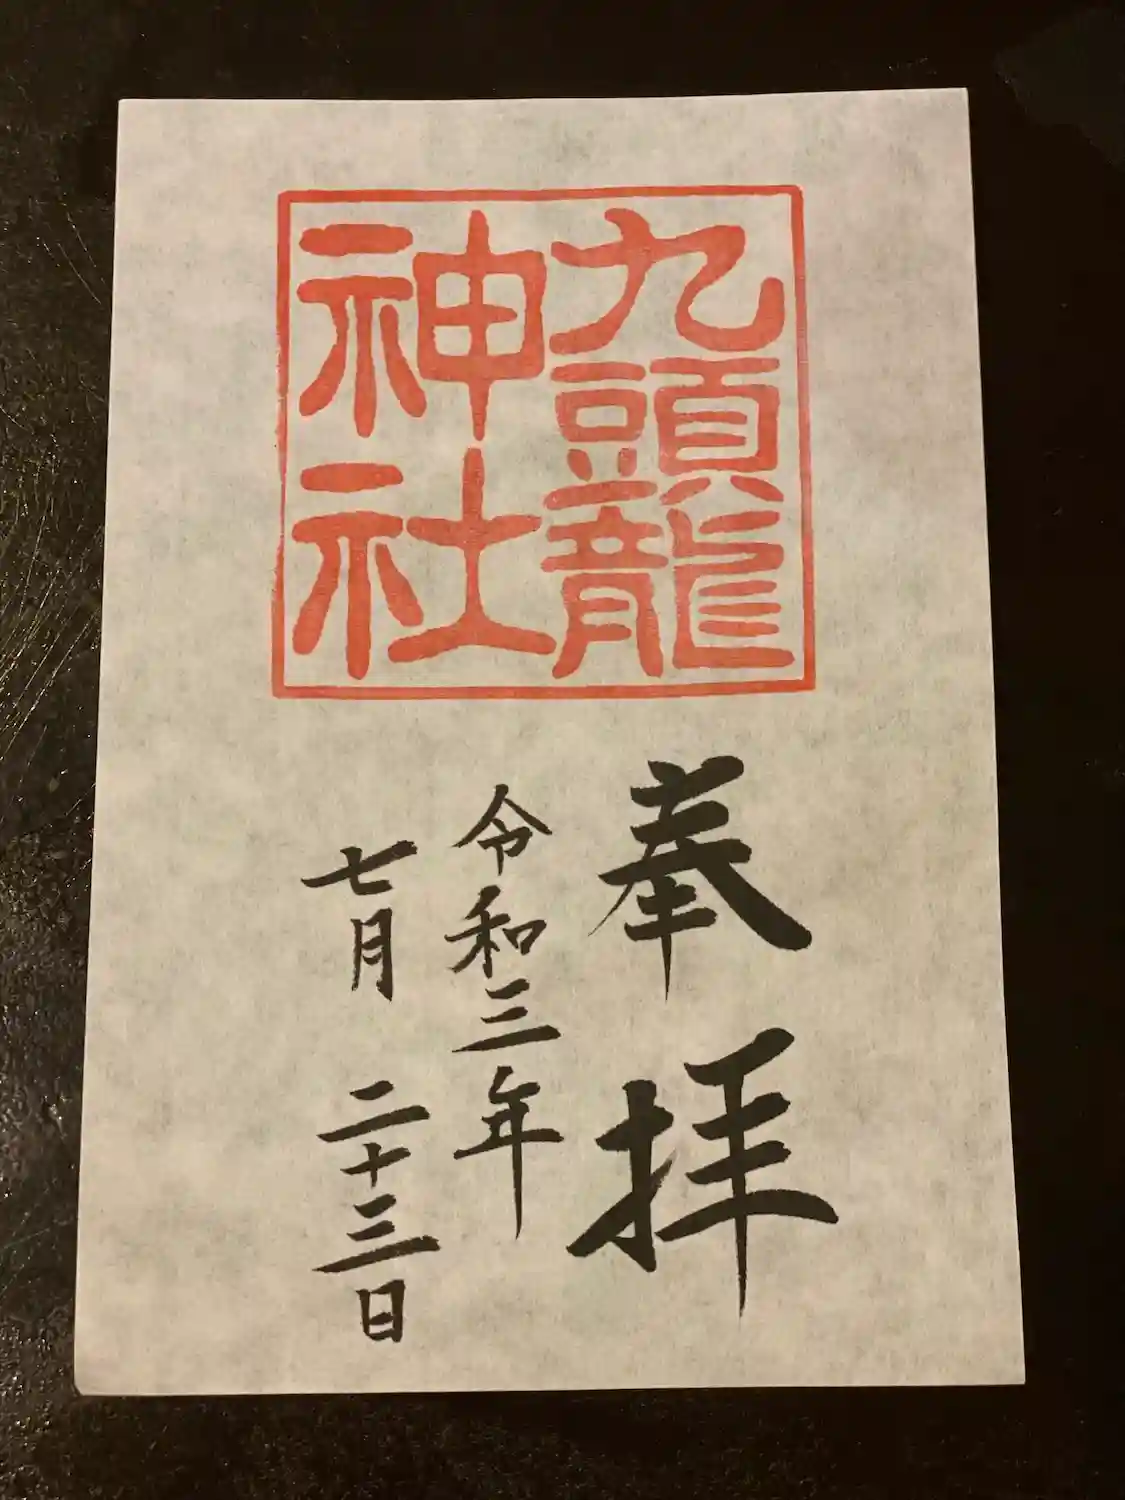 九頭龍
神社
奉拝
令和三年
七月二十三日